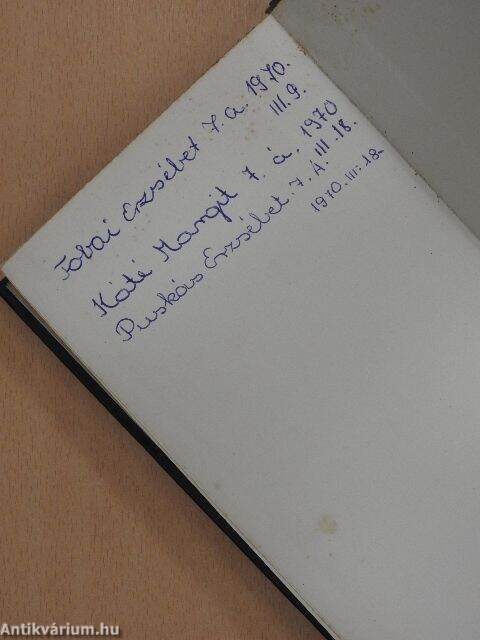 Tovai Erzsébet 7. a. 1970.
III. 9.
Káté Margit 7. á. 1970
III. 18.
Puskás Erzsébet. 7. A.
1970. III. 18.
Antikvárium.hu